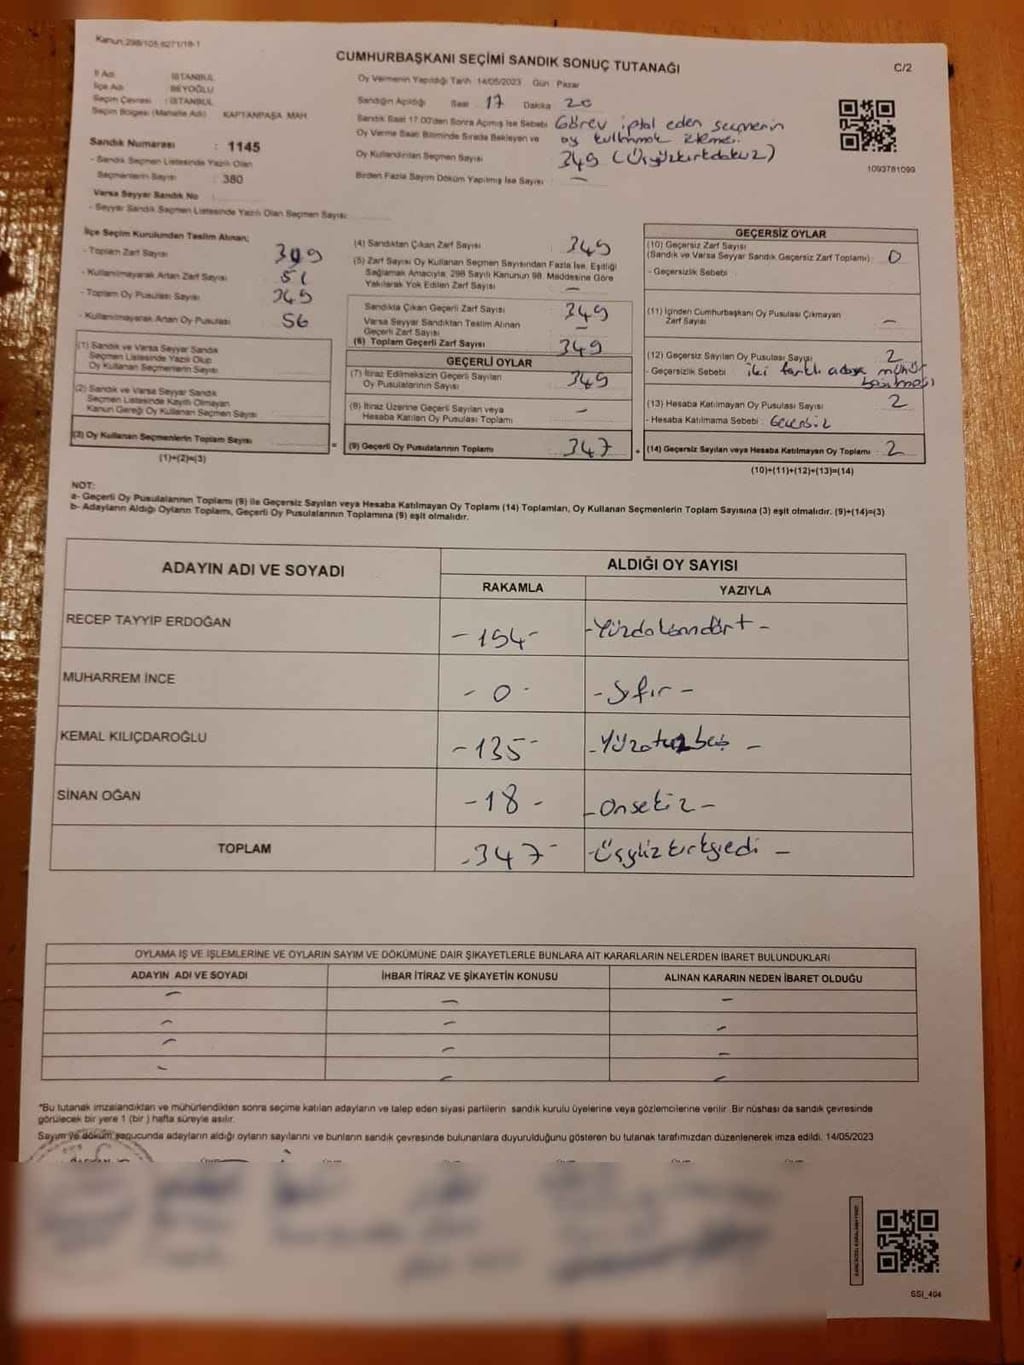 Kanun:298/105,6271/18-1
CUMHURBAŞKANI SEÇİMİ SANDIK SONUÇ TUTANAĞI
C/2
İl Adı : İSTANBUL
İlçe Adı : BEYOĞLU
Seçim Çevresi : İSTANBUL
Seçim Bölgesi (Mahalle Adı) : KAPTANPAŞA MAH
Sandık Numarası : 1145
- Sandık Seçmen Listesinde Yazılı Olan
Seçmenlerin Sayısı : 380
Varsa Seyyar Sandık No
- Seyyar Sandık Seçmen Listesinde Yazılı Olan Seçmen Sayısı:
Oy Vermenin Yapıldığı Tarih :14/05/2023 Gün : Pazar
Sandığın Açıldığı Saat : 17 Dakika : 20
Sandık Saat 17:00'den Sonra Açılmış İse Sebebi : Görev iptal eden seçmenin
Oy Verme Saati Bitiminde Sırada Bekleyen ve oy kullanmak istemesi
Oy Kullandırılan Seçmen Sayısı : 349 (Üçyüzkırkdokuz)
Birden Fazla Sayım Döküm Yapılmış İse Sayısı : —
1093781099
İlçe Seçim Kurulundan Teslim Alınan;
- Toplam Zarf Sayısı : 399
- Kullanılmayarak Artan Zarf Sayısı : 51
- Toplam Oy Pusulası Sayısı : 349
- Kullanılmayarak Artan Oy Pusulası : 56
(1) Sandık ve Varsa Seyyar Sandık
Seçmen Listesinde Yazılı Olup
Oy Kullanan Seçmenlerin Sayısı
(2) Sandık ve Varsa Seyyar Sandık
Seçmen Listesinde Kayıtlı Olmayan
Kanun Gereği Oy Kullanan Seçmen Sayısı
(3) Oy Kullanan Seçmenlerin Toplam Sayısı
(1)+(2)=(3)
(4) Sandıktan Çıkan Zarf Sayısı : 349
(5) Zarf Sayısı Oy Kullanan Seçmen Sayısından Fazla İse, Eşitliği
Sağlamak Amacıyla, 298 Sayılı Kanunun 98. Maddesine Göre
Yakılarak Yok Edilen Zarf Sayısı : —
Sandıkta Çıkan Geçerli Zarf Sayısı : 349
Varsa Seyyar Sandıktan Teslim Alınan
Geçerli Zarf Sayısı : —
(6) Toplam Geçerli Zarf Sayısı : 349
GEÇERLİ OYLAR
(7) İtiraz Edilmeksizin Geçerli Sayılan
Oy Pusulalarının Sayısı : 345
(8) İtiraz Üzerine Geçerli Sayılan veya
Hesaba Katılan Oy Pusulası Toplamı : —
(9) Geçerli Oy Pusulalarının Toplamı : 347
GEÇERSİZ OYLAR
(10) Geçersiz Zarf Sayısı
(Sandık ve Varsa Seyyar Sandık Geçersiz Zarf Toplamı) : 0
- Geçersizlik Sebebi :
(11) İçinden Cumhurbaşkanı Oy Pusulası Çıkmayan
Zarf Sayısı : —
(12) Geçersiz Sayılan Oy Pusulası Sayısı : 2
- Geçersizlik Sebebi : iki farklı adaya mühür
basılması
(13) Hesaba Katılmayan Oy Pusulası Sayısı : 2
- Hesaba Katılmama Sebebi : Geçersiz
(14) Geçersiz Sayılan veya Hesaba Katılmayan Oy Toplamı : 2
(10)+(11)+(12)+(13)=(14)
NOT:
a- Geçerli Oy Pusulalarının Toplamı (9) ile Geçersiz Sayılan veya Hesaba Katılmayan Oy Toplamı (14) Toplamları, Oy Kullanan Seçmenlerin Toplam Sayısına (3) eşit olmalıdır. (9)+(14)=(3)
b- Adayların Aldığı Oyların Toplamı, Geçerli Oy Pusulalarının Toplamına (9) eşit olmalıdır.
ADAYIN ADI VE SOYADI
ALDIĞI OY SAYISI
RAKAMLA YAZIYLA
RECEP TAYYİP ERDOĞAN -194- -Yüzdoksandört-
MUHARREM İNCE - 0 - - Sıfır -
KEMAL KILIÇDAROĞLU -135- -Yüzotuzbeş -
SİNAN OĞAN -18- -Onsekiz-
TOPLAM -347- -Üçyüzkırkyedi -
OYLAMA İŞ VE İŞLEMLERİNE VE OYLARIN SAYIM VE DÖKÜMÜNE DAİR ŞİKAYETLERLE BUNLARA AİT KARARLARIN NELERDEN İBARET BULUNDUKLARI
ADAYIN ADI VE SOYADI İHBAR İTİRAZ VE ŞİKAYETİN KONUSU ALINAN KARARIN NEDEN İBARET OLDUĞU
— — —
— — —
— — —
— — —
*Bu tutanak imzalandıktan ve mühürlendikten sonra seçime katılan adayların ve talep eden siyasi partilerin sandık kurulu üyelerine veya gözlemcilerine verilir. Bir nüshası da sandık çevresinde
görülecek bir yere 1 (bir) hafta süreyle asılır.
Sayım ve döküm sonucunda adayların aldığı oyların sayılarını ve bunların sandık çevresinde bulunanlara duyurulduğunu gösteren bu tutanak tarafımızdan düzenlenerek imza edildi. 14/05/2023
SSI_404